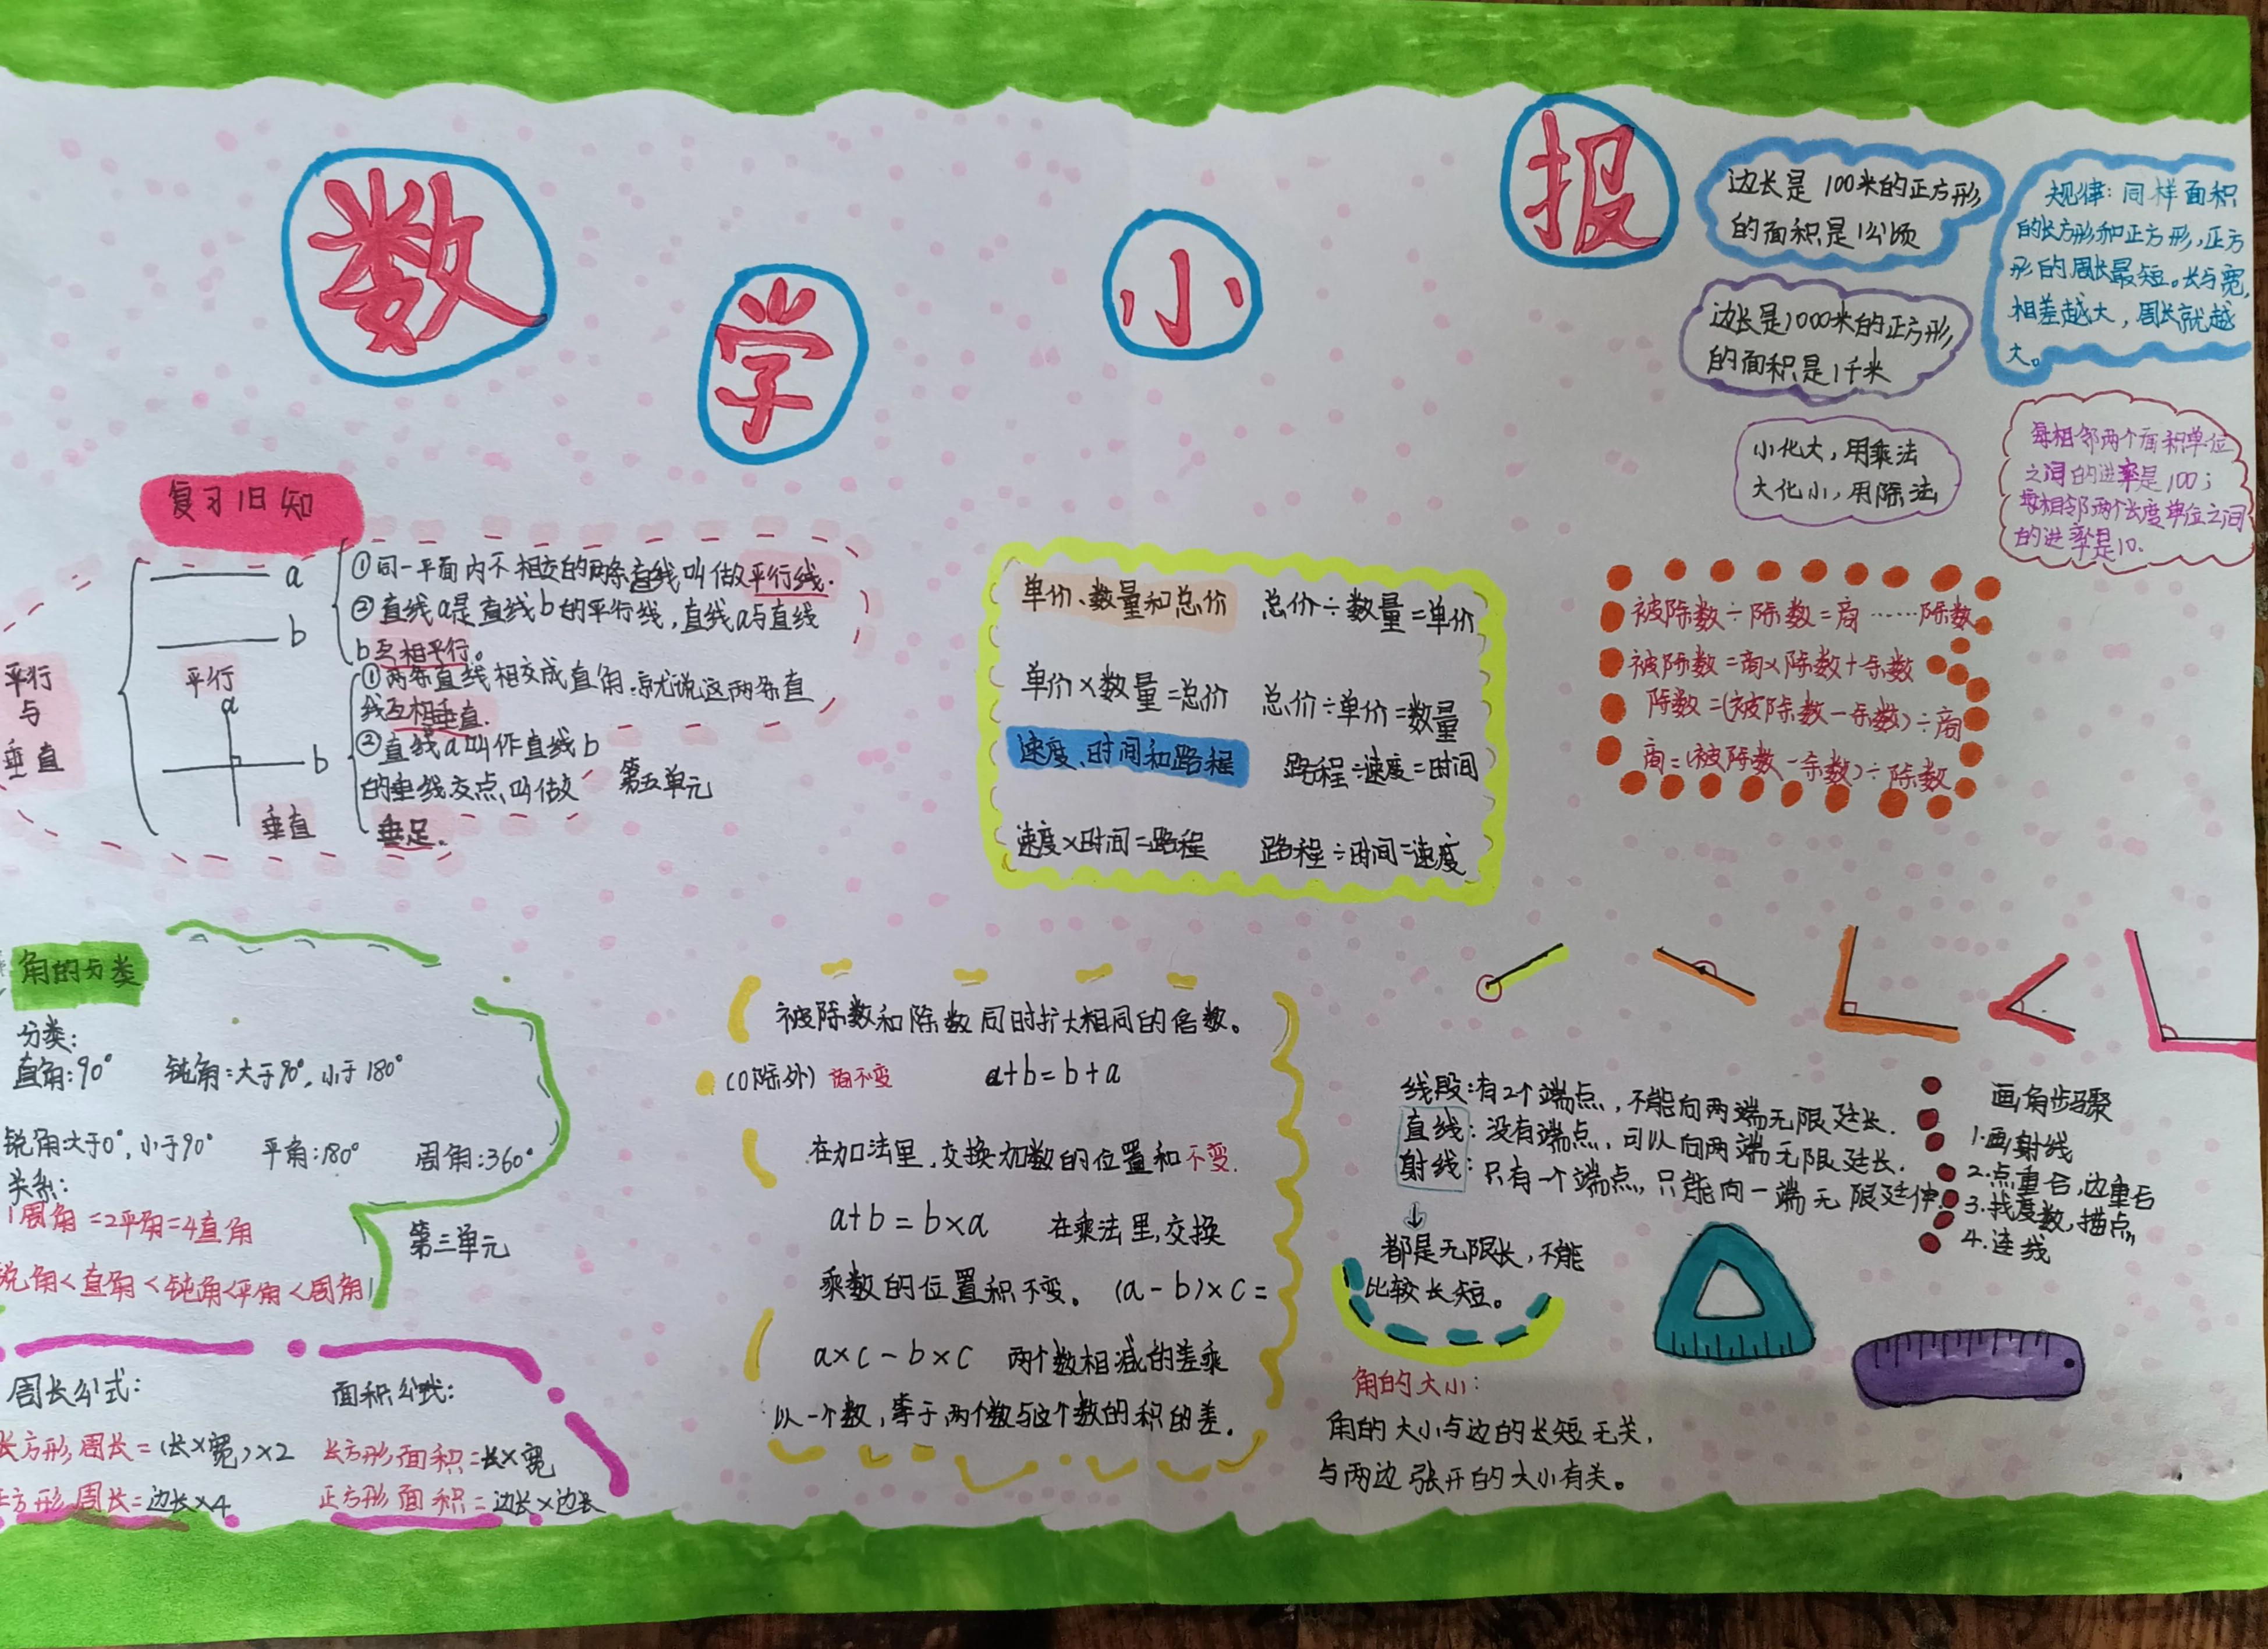 数学小报
边长是100米的正方形
的面积是1公顷
边长是1000米的正方形,
的面积是1千米
小化大,用乘法
大化小,用除法
规律:同样面积
的长方形和正方形,正方
形的周长最短。长与宽,
相差越大,周长就越
大。
每相邻两个面积单位
之间的进率是100;
每相邻两个长度单位之间
的进率是10.
复习旧知
平行
与
垂直
a
b
平行
①同一平面内不相交的两条直线叫做平行线.
②直线a是直线b的平行线,直线a与直线
b互相平行。
a
b
垂直
①两条直线相交成直角.就说这两条直
线互相垂直.
②直线a叫作直线b
的垂线交点,叫做
垂足.
第五单元
单价、数量和总价 总价÷数量=单价
单价×数量=总价 总价÷单价=数量
速度、时间和路程 路程÷速度=时间
速度×时间=路程 路程÷时间=速度
被除数÷除数=商……除数
被除数=商×除数+余数
除数=(被除数-余数)÷商
商=(被除数-余数)÷除数
角的分类
分类:
直角:90° 钝角=大于90°,小于180°
锐角:大于0°,小于90° 平角:180° 周角:360°
关系:
1周角=2平角=4直角
锐角<直角<钝角<平角<周角
第三单元
周长公式:
长方形周长=(长×宽)×2
正方形周长=边长×4
面积公式:
长方形面积=长×宽
正方形面积=边长×边长
被除数和除数同时扩大相同的倍数。
(0除外) 商不变 a+b=b+a
在加法里,交换加数的位置和不变.
a+b=b×a 在乘法里,交换
乘数的位置积不变。 (a-b)×c=
a×c-b×c 两个数相减的差乘
以一个数,等于两个数与这个数的积的差.
线段:有2个端点,不能向两端无限延长.
直线:没有端点,可以向两端无限延长.
射线:只有一个端点,只能向一端无限延伸.
都是无限长,不能
比较长短。
画角步骤
1.画射线
2.点重合,边重合
3.找度数,描点,
4.连线
角的大小:
角的大小与边的长短无关,
与两边张开的大小有关。